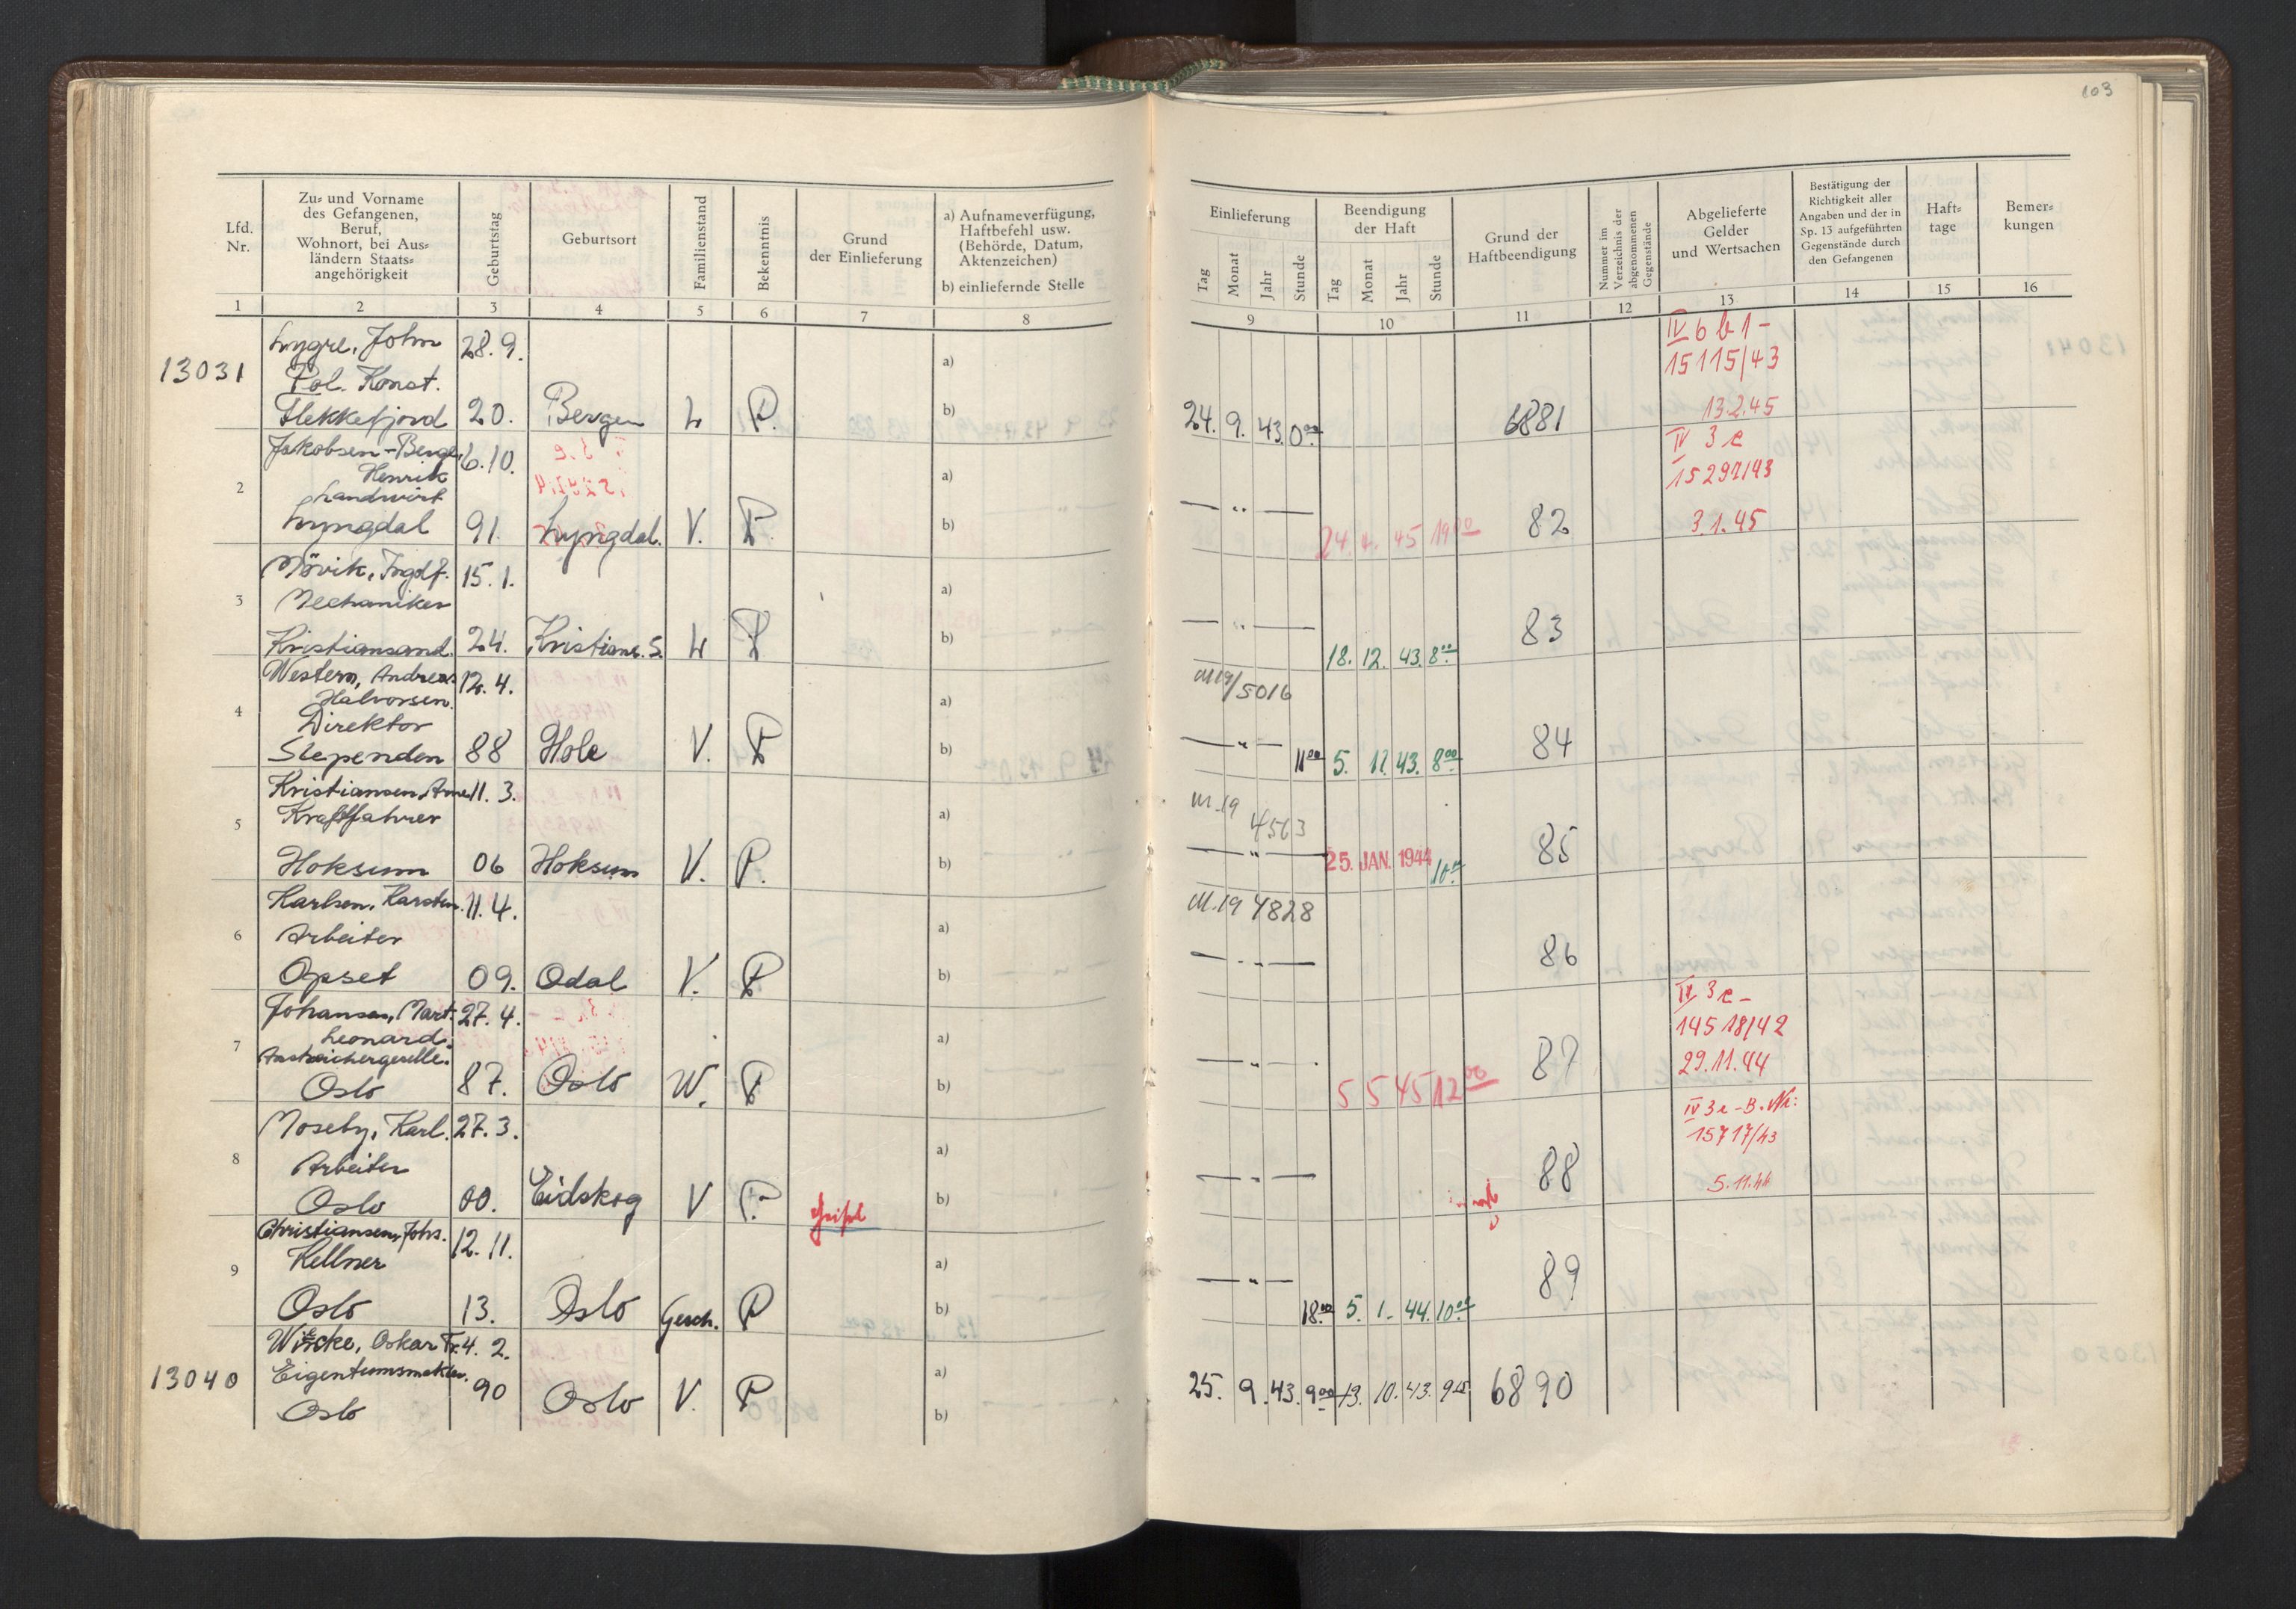 103
Lfd.
Nr.
Zu= und Vorname
des Gefangenen,
Beruf,
Wohnort, bei Aus=
ländern Staats=
angehörigkeit
Geburtstag
Geburtsort
Familienstand
Bekenntnis
Grund
der Einlieferung
a) Aufnameverfügung,
Haftbefehl usw.
(Behörde, Datum,
Aktenzeichen)
b) einliefernde Stelle
1 2 3 4 5 6 7 8
13031
Lygre, John 28. 9.
Pol. Konst.
Flekkefjord 20. Bergen L P.
a)
b)
2
Jakobsen-Berge, 6.10.
Henrik
Landwirt
Lyngdal 91. Lyngdal. V. P.
a)
b)
3
Mövik, Ingolf. 15. 1.
Mechaniker
Kristiansand. 24. Kristians. S. L P
a)
b)
4
Western, Andreas 12. 4.
Halvorsen.
Direktor
Slependen 88 Hole V. P
a)
b)
5
Kristiansen, Arne 11. 3.
Kraftfahrer
Hoksum 06 Hoksum V. P.
a)
b)
6
Karlsen, Karsten. 11. 4.
Arbeiter
Opset 09. Odal V. P
a)
b)
7
Johansen, Mart. 27. 4.
Leonard.
Anstreichergeselle.
Oslo 87. Oslo W. P
a)
b)
8
Moseby, Karl. 27. 3.
Arbeiter
Oslo 00. Eidskog V P
a)
b)
9
Christiansen, Johs. 12. 11.
Kellner
Oslo 13. Oslo Gesch. P
a)
b)
13040
Wincke, Oskar Fr. 4. 2.
Eigentumsmakler.
Oslo 90 Oslo V. P
a)
b)
Einlieferung
Tag Monat Jahr Stunde
Beendigung
der Haft
Tag Monat Jahr Stunde
Grund der
Haftbeendigung
Nummer im
Verzeichnis der
abgenommenen
Gegenstände
Abgelieferte
Gelder
und Wertsachen
Bestätigung der
Richtigkeit aller
Angaben und der in
Sp. 13 aufgeführten
Gegenstände durch
den Gefangenen
Haft=
tage
Bemer=
kungen
9 10 11 12 13 14 15 16
IV 6 b 1 -
15115/43
13.2.45
24. 9. 43. 0.00 6881
IV 3 e
15297/43
3.1.45
— " — 24. 4. 45 19 00 82
— " — 18. 12. 43. 8 00 83
M19/5016
— " — 11 00 5. 11. 43. 8 00 84
M.19
4563
— " — 25. JAN. 1944 10 00 85
M.19 4828
— " — 86
IV 3 e -
14518/42
29.11.44
— " — 5 5 45 12 00 87
IV 3 e - B. Nr:
15717/43
5.11.44
— " — 88
— " — 18 00 5. 1. 44. 10 00 89
25. 9. 43. 9 00 13. 10. 43. 9 15 6890